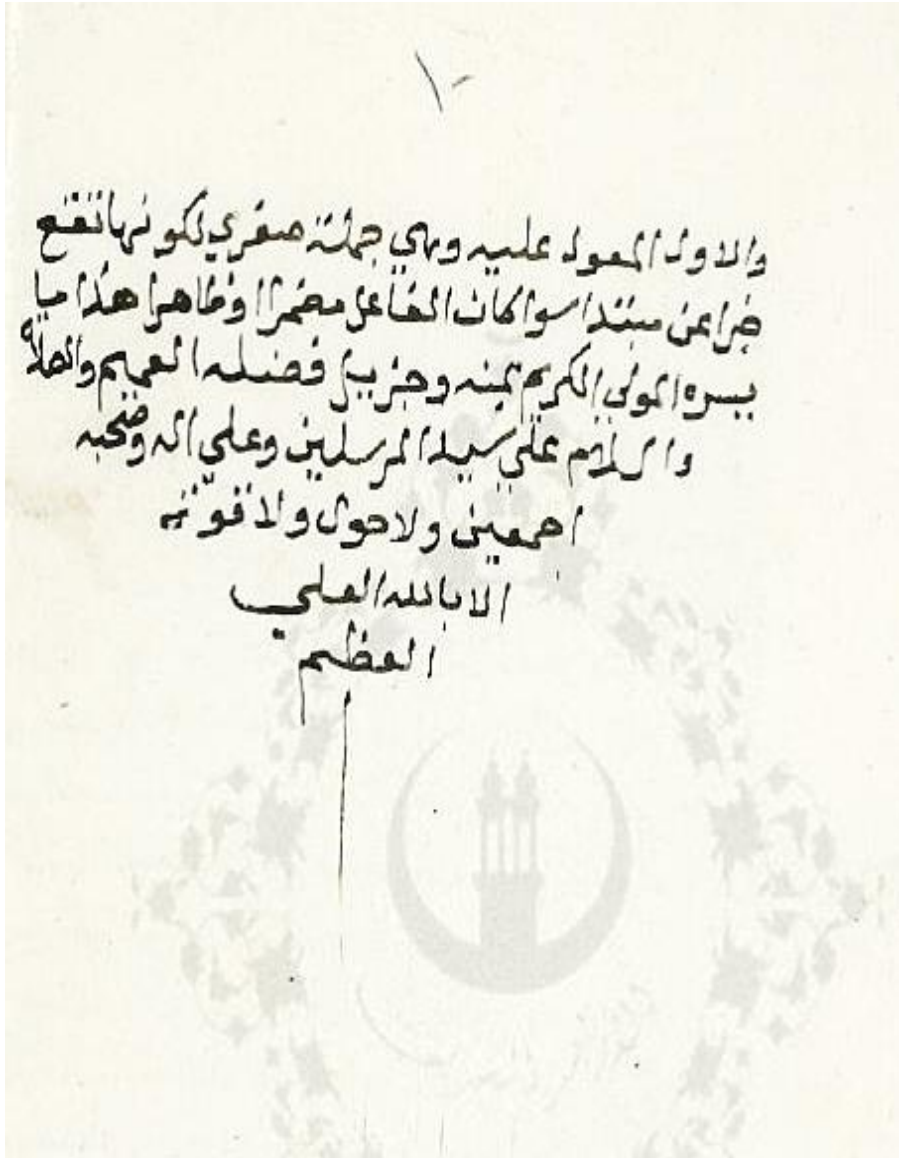 ١٠
والاول المعول عليه وهي جملة صغري لكونها تقع
خبرا عن مبتدا سوا كان الفاعل مضمرا او ظاهرا هذا ما
يسره المولي الكريم بمنه وجزيل فضله العميم والصلاة
والسلام علي سيد المرسلين وعلي اله وصحبه
اجمعين ولا حول ولا قوة
الا بالله العلي
العظيم